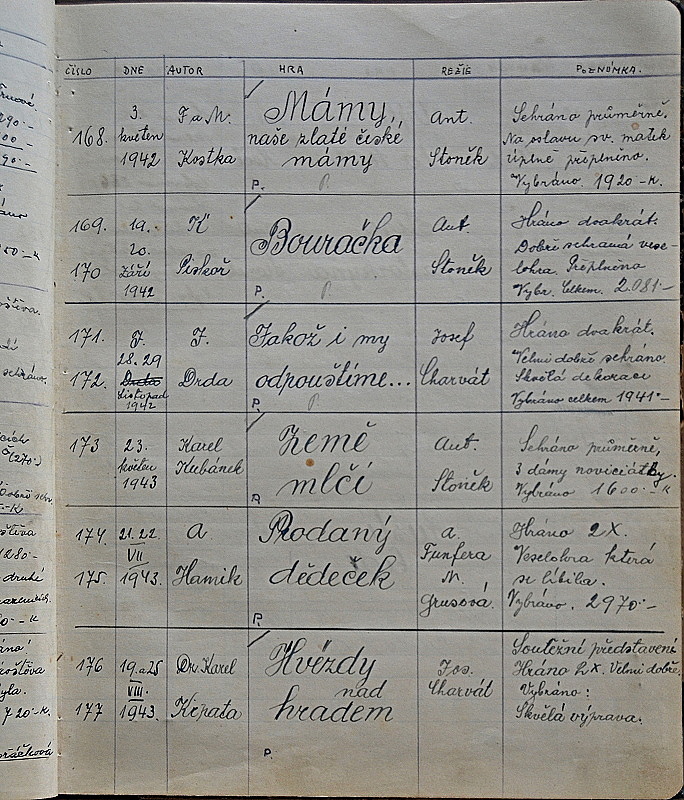 ČÍSLO DNE AUTOR HRA REŽIE POZNÓMKA.
168. 3. květen 1942 F a M. Kostka
Mámy,
naše zlaté české
mámy
P.
Ant. Stoněk
Sehráno průměrně.
Na oslavu sv. matek
úplně přeplněno.
Vybráno 1920 -K.
169. 19. K
170 20. Září 1942 Piskoř
Bouračka
P.
Ant. Stoněk
Hráno dvakrát.
Dobře sehraná vese-
lohra. Přeplněna
Vybr. Celkem. 2.081·-
171. J.
172. 28. 29 listopad 1942 Drda
Jakož i my
odpouštíme...
P.
Josef Charvát
Hráno dvakrát.
Velmi dobře sehráno
Skvělá dekorací
Vybráno celkem 1941·-
173 23. květen 1943 Karel Kubánek
Země
mlčí
P.
Ant. Stoněk
Sehráno průměrně,
3 dámy noviciátky.
Vybráno 1600·-K
174 21. 22. A.
175. VII 1943. Hamik
Prodaný
dědeček
P.
A. Funfera
M. Grusová.
Hráno 2X.
Veselohra která
se líbila.
Vybráno. 2970·-
176 19. a 25 Dr. Karel
177 VIII. 1943. Křpata
Hvězdy
nad
hradem
P.
Jos. Charvát
Soutěžní představení
Hráno 2X. Velmi dobře.
Vybráno:
Skvělá výprava.